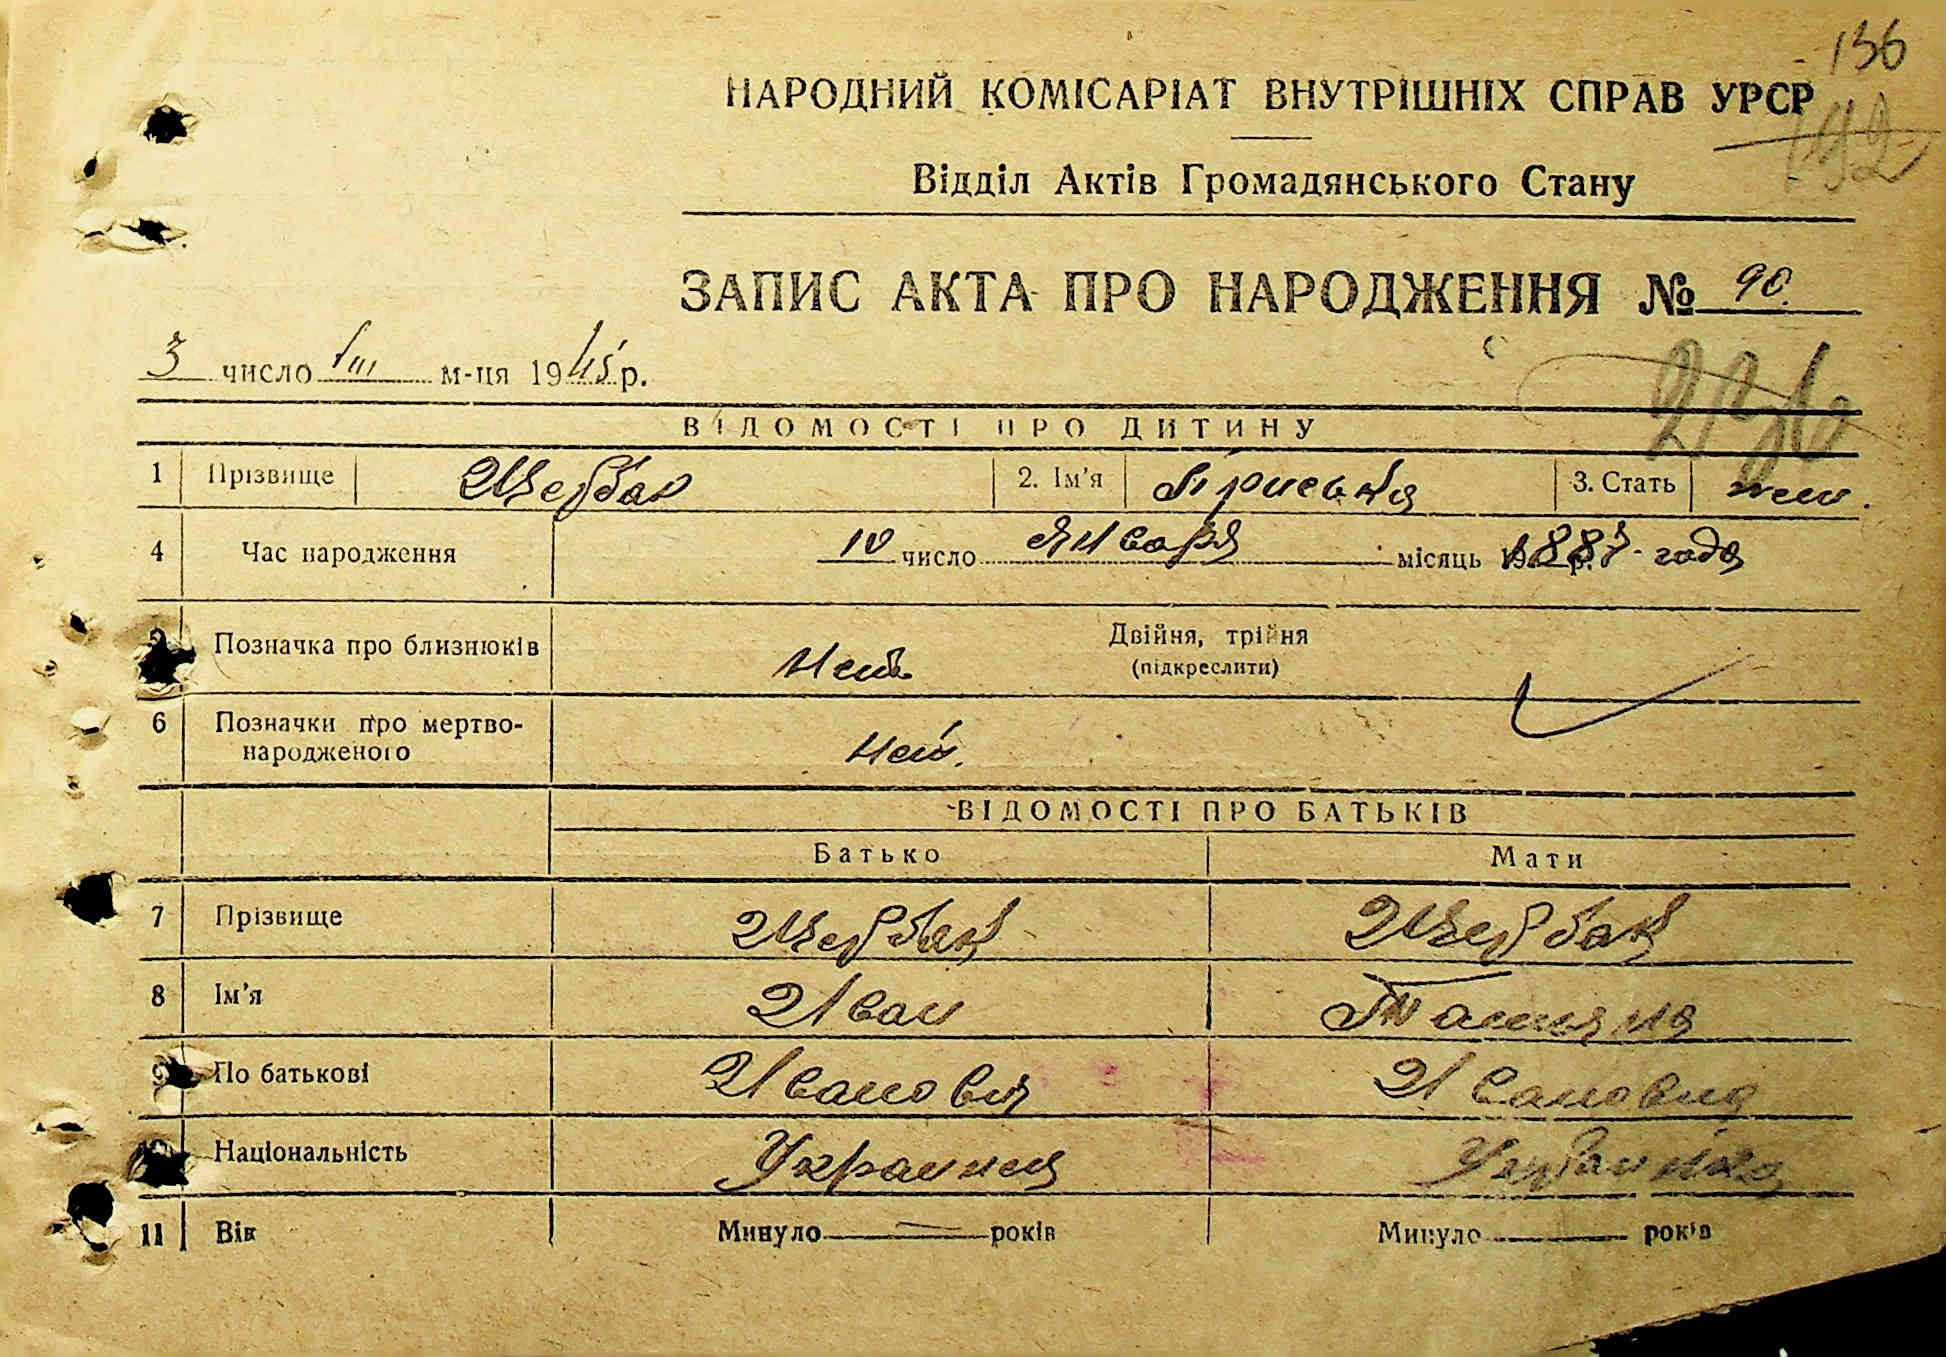 136
НАРОДНИЙ КОМІСАРІАТ ВНУТРІШНІХ СПРАВ УРСР
192
Відділ Актів Громадянського Стану
ЗАПИС АКТА ПРО НАРОДЖЕННЯ № 90.
3 число VIII м-ця 1945 р.
ВІДОМОСТІ ПРО ДИТИНУ
1 Прізвище Щербак 2. Ім'я 3. Стать жен.
4 Час народження 10 число Января місяць 1887 года
Позначка про близнюків Нет Двійня, трійня
(підкреслити)
6 Позначки про мертво-
народженого Нет.
ВІДОМОСТІ ПРО БАТЬКІВ
Батько Мати
7 Прізвище Щербак Щербак
8 Ім'я Иван Татьяна
9 По батькові Иванович Ивановна
10 Національність Украинец Украинка
11 Вік Минуло років Минуло років